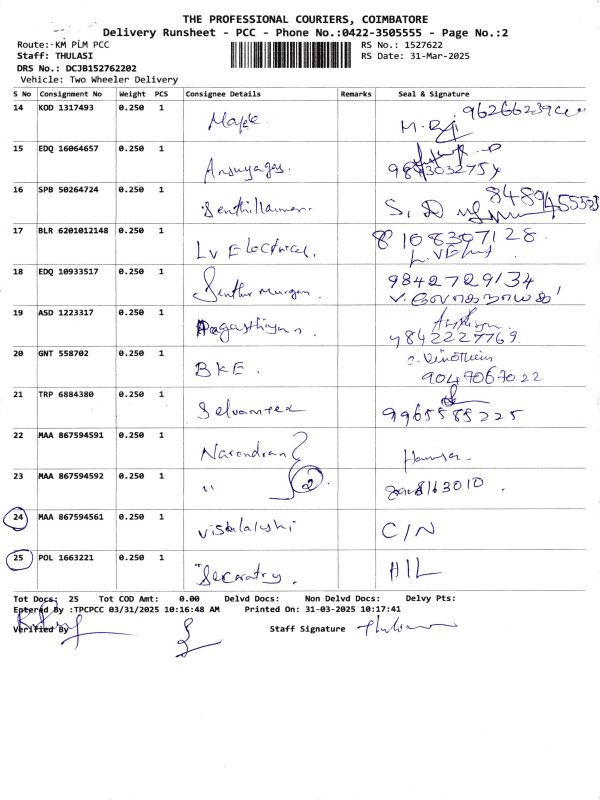 THE PROFESSIONAL COURIERS, COIMBATORE
Delivery Runsheet - PCC - Phone No.:0422-3505555 - Page No.:2
Route:- KM PLM PCC
Staff: THULASI
RS No.: 1527622
RS Date: 31-Mar-2025
DRS No.: DCJB152762202
Vehicle: Two Wheeler Delivery
S No Consignment No Weight PCS Consignee Details Remarks Seal & Signature
14 KOD 1317493 0.250 1
15 EDQ 16064657 0.250 1
16 SPB 50264724 0.250 1
17 BLR 6201012148 0.250 1 LV Electrical. 8108307128
18 EDQ 10933517 0.250 1 9842729134
19 ASD 1223317 0.250 1 9842227769
20 GNT 558702 0.250 1 BKE. 9047067022
21 TRP 6884380 0.250 1 Selvamtex 9965585225
22 MAA 867594591 0.250 1 Narendran
23 MAA 867594592 0.250 1 " 2
24 MAA 867594561 0.250 1 C/N
25 POL 1663221 0.250 1 HIL
Tot Docs: 25 Tot COD Amt: 0.00 Delvd Docs: Non Delvd Docs: Delvy Pts:
Entered By :TPCPCC 03/31/2025 10:16:48 AM Printed On: 31-03-2025 10:17:41
Verified By Staff Signature